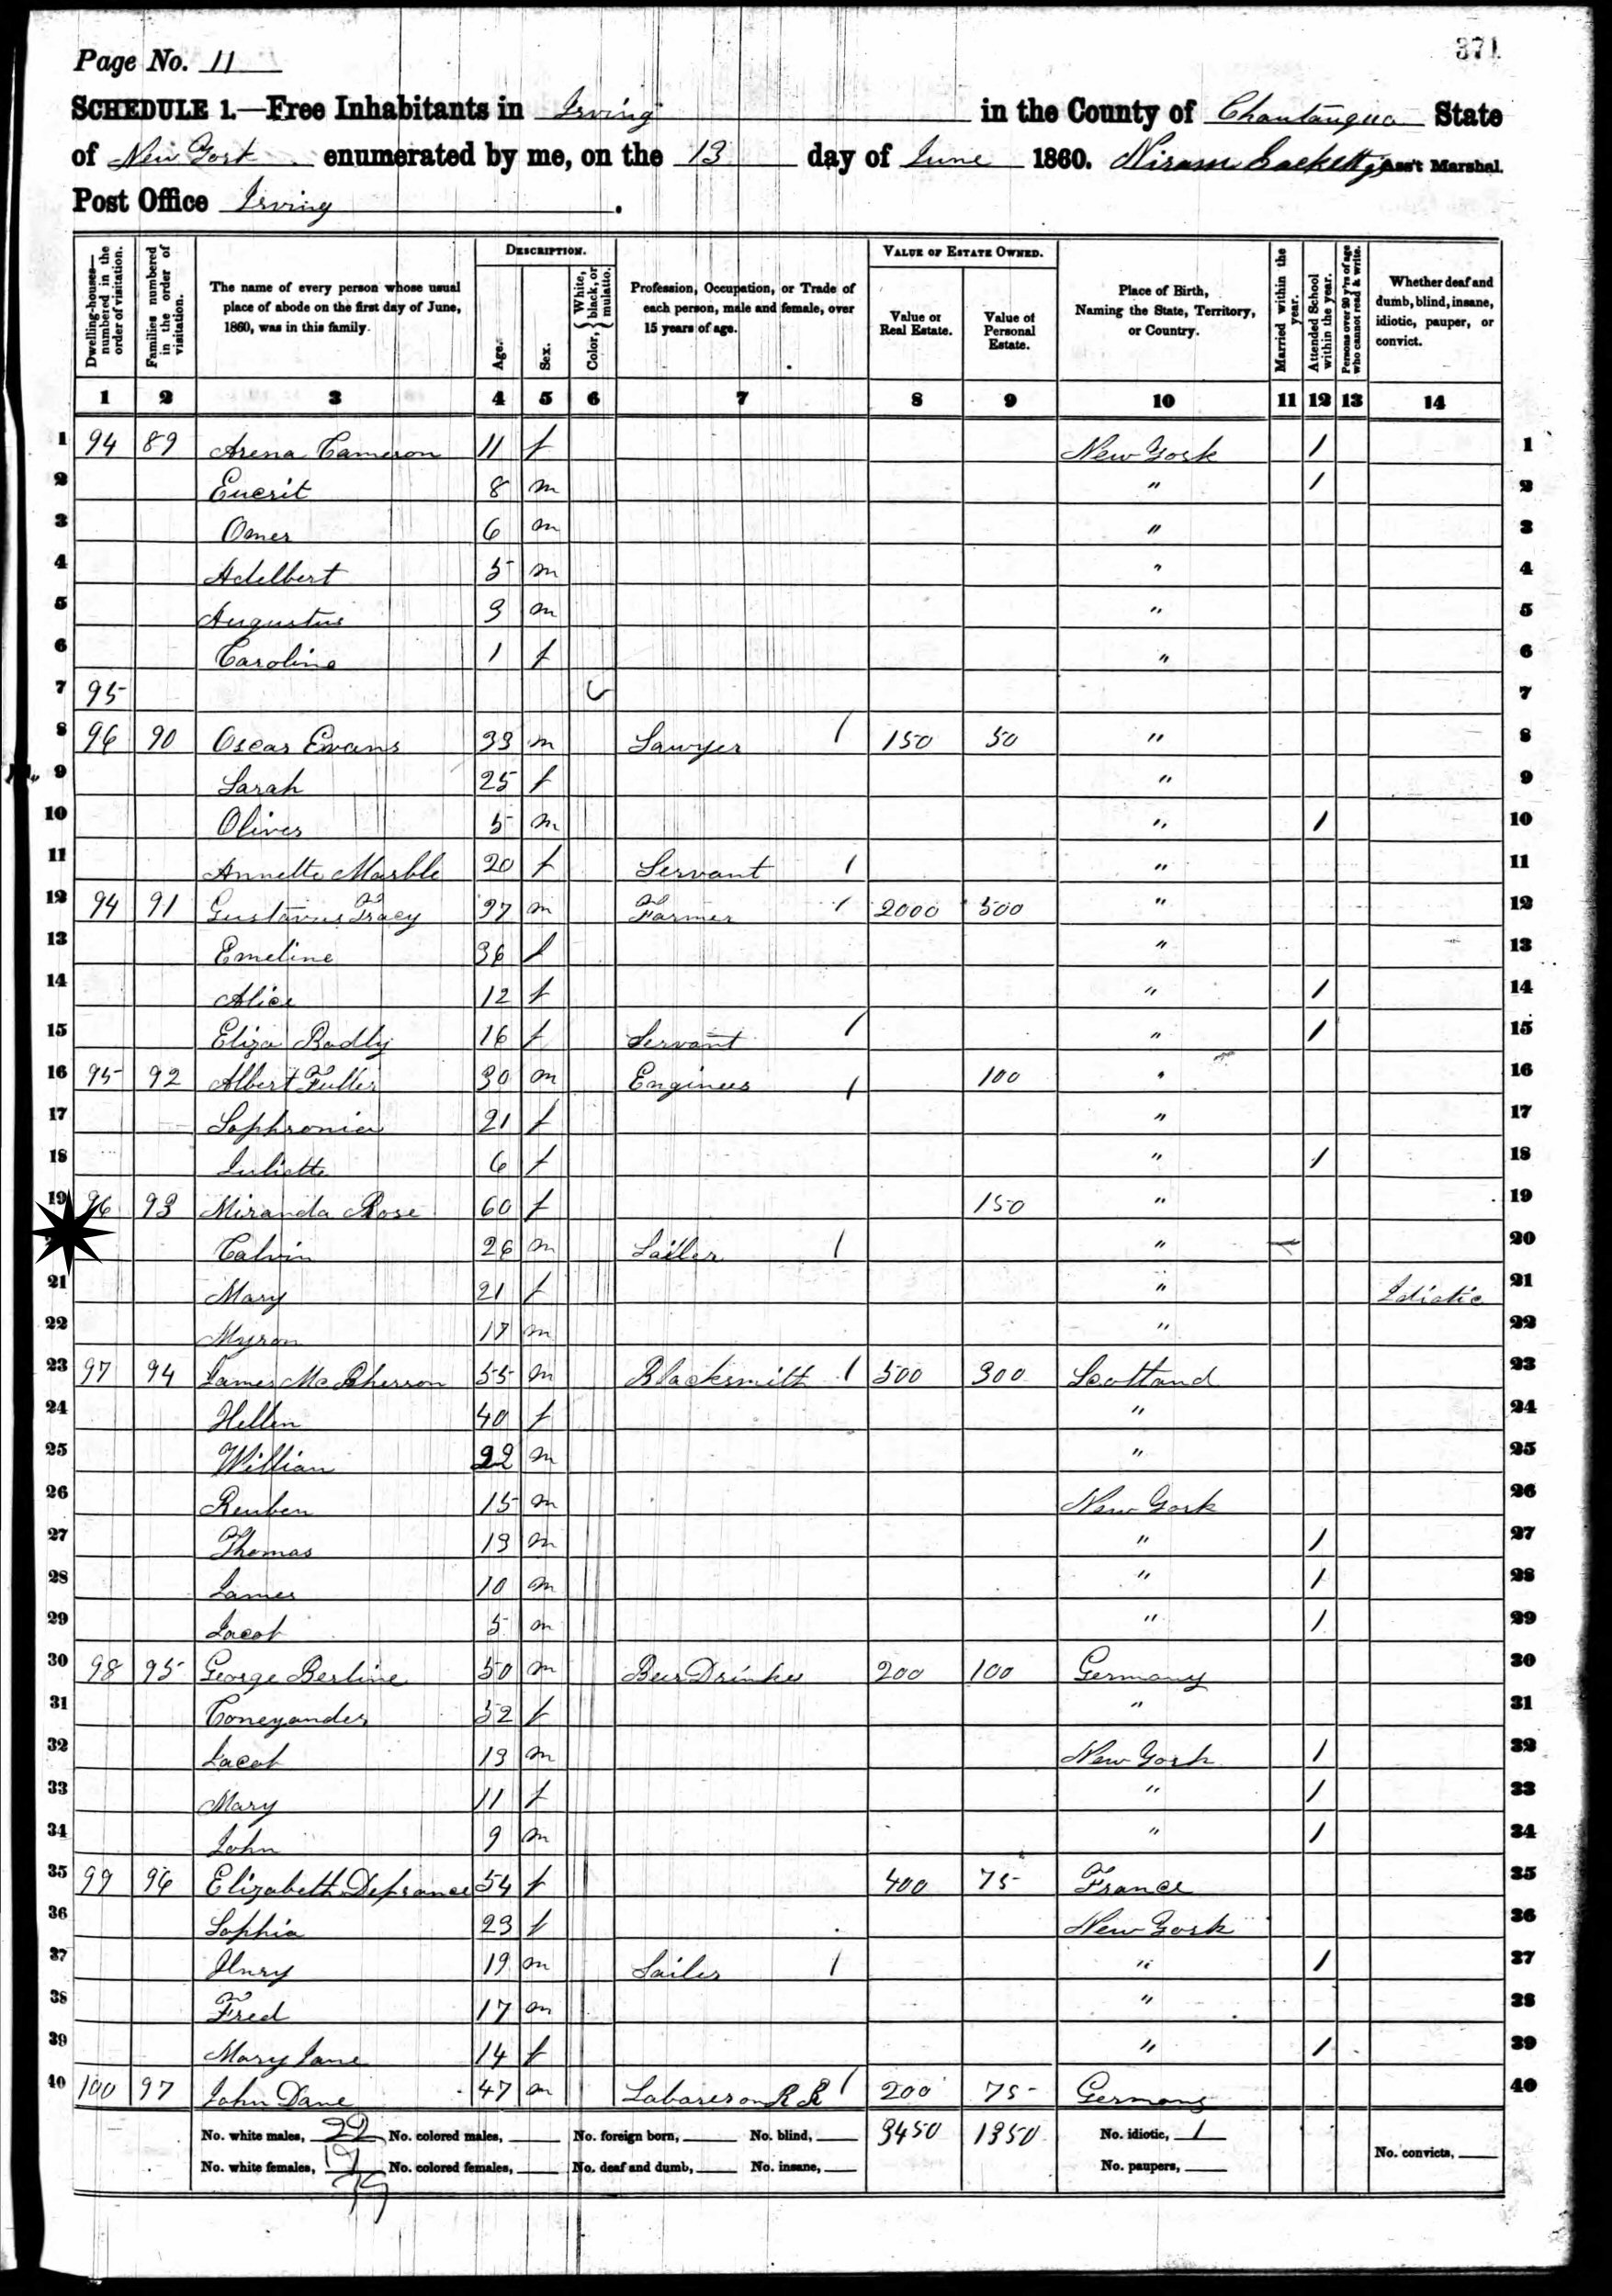 371
Page No. 11
SCHEDULE 1.—Free Inhabitants in Irving in the County of Chautauqua State
of New York enumerated by me, on the 13 day of June 1860. Ass't Marshal.
Post Office Irving.
DESCRIPTION. VALUE OF ESTATE OWNED.
Dwelling-houses—numbered in the order of visitation. Families numbered in the order of visitation. The name of every person whose usual place of abode on the first day of June, 1860, was in this family. Age. Sex. Color, {White, black, or mulatto. Profession, Occupation, or Trade of each person, male and female, over 15 years of age. Value of Real Estate. Value of Personal Estate. Place of Birth, Naming the State, Territory, or Country. Married within the year. Attended School within the year. Persons over 20 y'rs of age who cannot read & write. Whether deaf and dumb, blind, insane, idiotic, pauper, or convict.
1 2 3 4 5 6 7 8 9 10 11 12 13 14
1 94 89 Arena Cameron 11 f New York / 1
2 Eucrit 8 m " / 2
3 Omer 6 m " 3
4 Adelbert 5 m " 4
5 Augustus 3 m " 5
6 Caroline 1 f " 6
7 95 7
8 96 90 Oscar Evans 33 m Sawyer / 150 50 " 8
9 Sarah 25 f " 9
10 Oliver 5 m " / 10
11 Annette Marble 20 f Servant / " 11
12 94 91 Gustavus Tracy 37 m Farmer / 2000 500 " 12
13 Emeline 36 f " 13
14 Alice 12 f " / 14
15 Eliza Badly 16 f Servant / " / 15
16 95 92 Albert Fuller 30 m Engineer / 100 " 16
17 Sophronia 21 f " 17
18 Juliette 6 f " / 18
19 96 93 Miranda Rose 60 f 150 " 19
Calvin 26 m Sailer / " / 20
21 Mary 21 f " Idiotic 21
22 Myron 17 m " 22
23 97 94 James McPherson 55 m Blacksmith / 500 300 Scotland 23
24 Hellen 40 f " 24
25 Willian 22 m " 25
26 Reuben 15 m New York 26
27 Thomas 13 m " / 27
28 James 10 m " / 28
29 Jacob 5 m " / 29
30 98 95 George Berline 50 m Beer Drinker 200 100 Germany 30
31 Coneyander 52 f " 31
32 Jacob 13 m New York / 32
33 Mary 11 f " / 33
34 John 9 m " / 34
35 99 96 Elizabeth Defrance 54 f 400 75 France 35
36 Sophia 23 f New York 36
37 Henry 19 m Sailer / " / 37
38 Fred 17 m " 38
39 Mary Jane 14 f " / 39
40 100 97 John Dane 47 m Laborer on RR / 200 75 Germany 40
No. white males, 22 No. colored males, No. foreign born, No. blind, 3450 1350 No. idiotic, 1
No. white females, 17 No. colored females, No. deaf and dumb, No. insane, No. paupers, No. convicts,
39